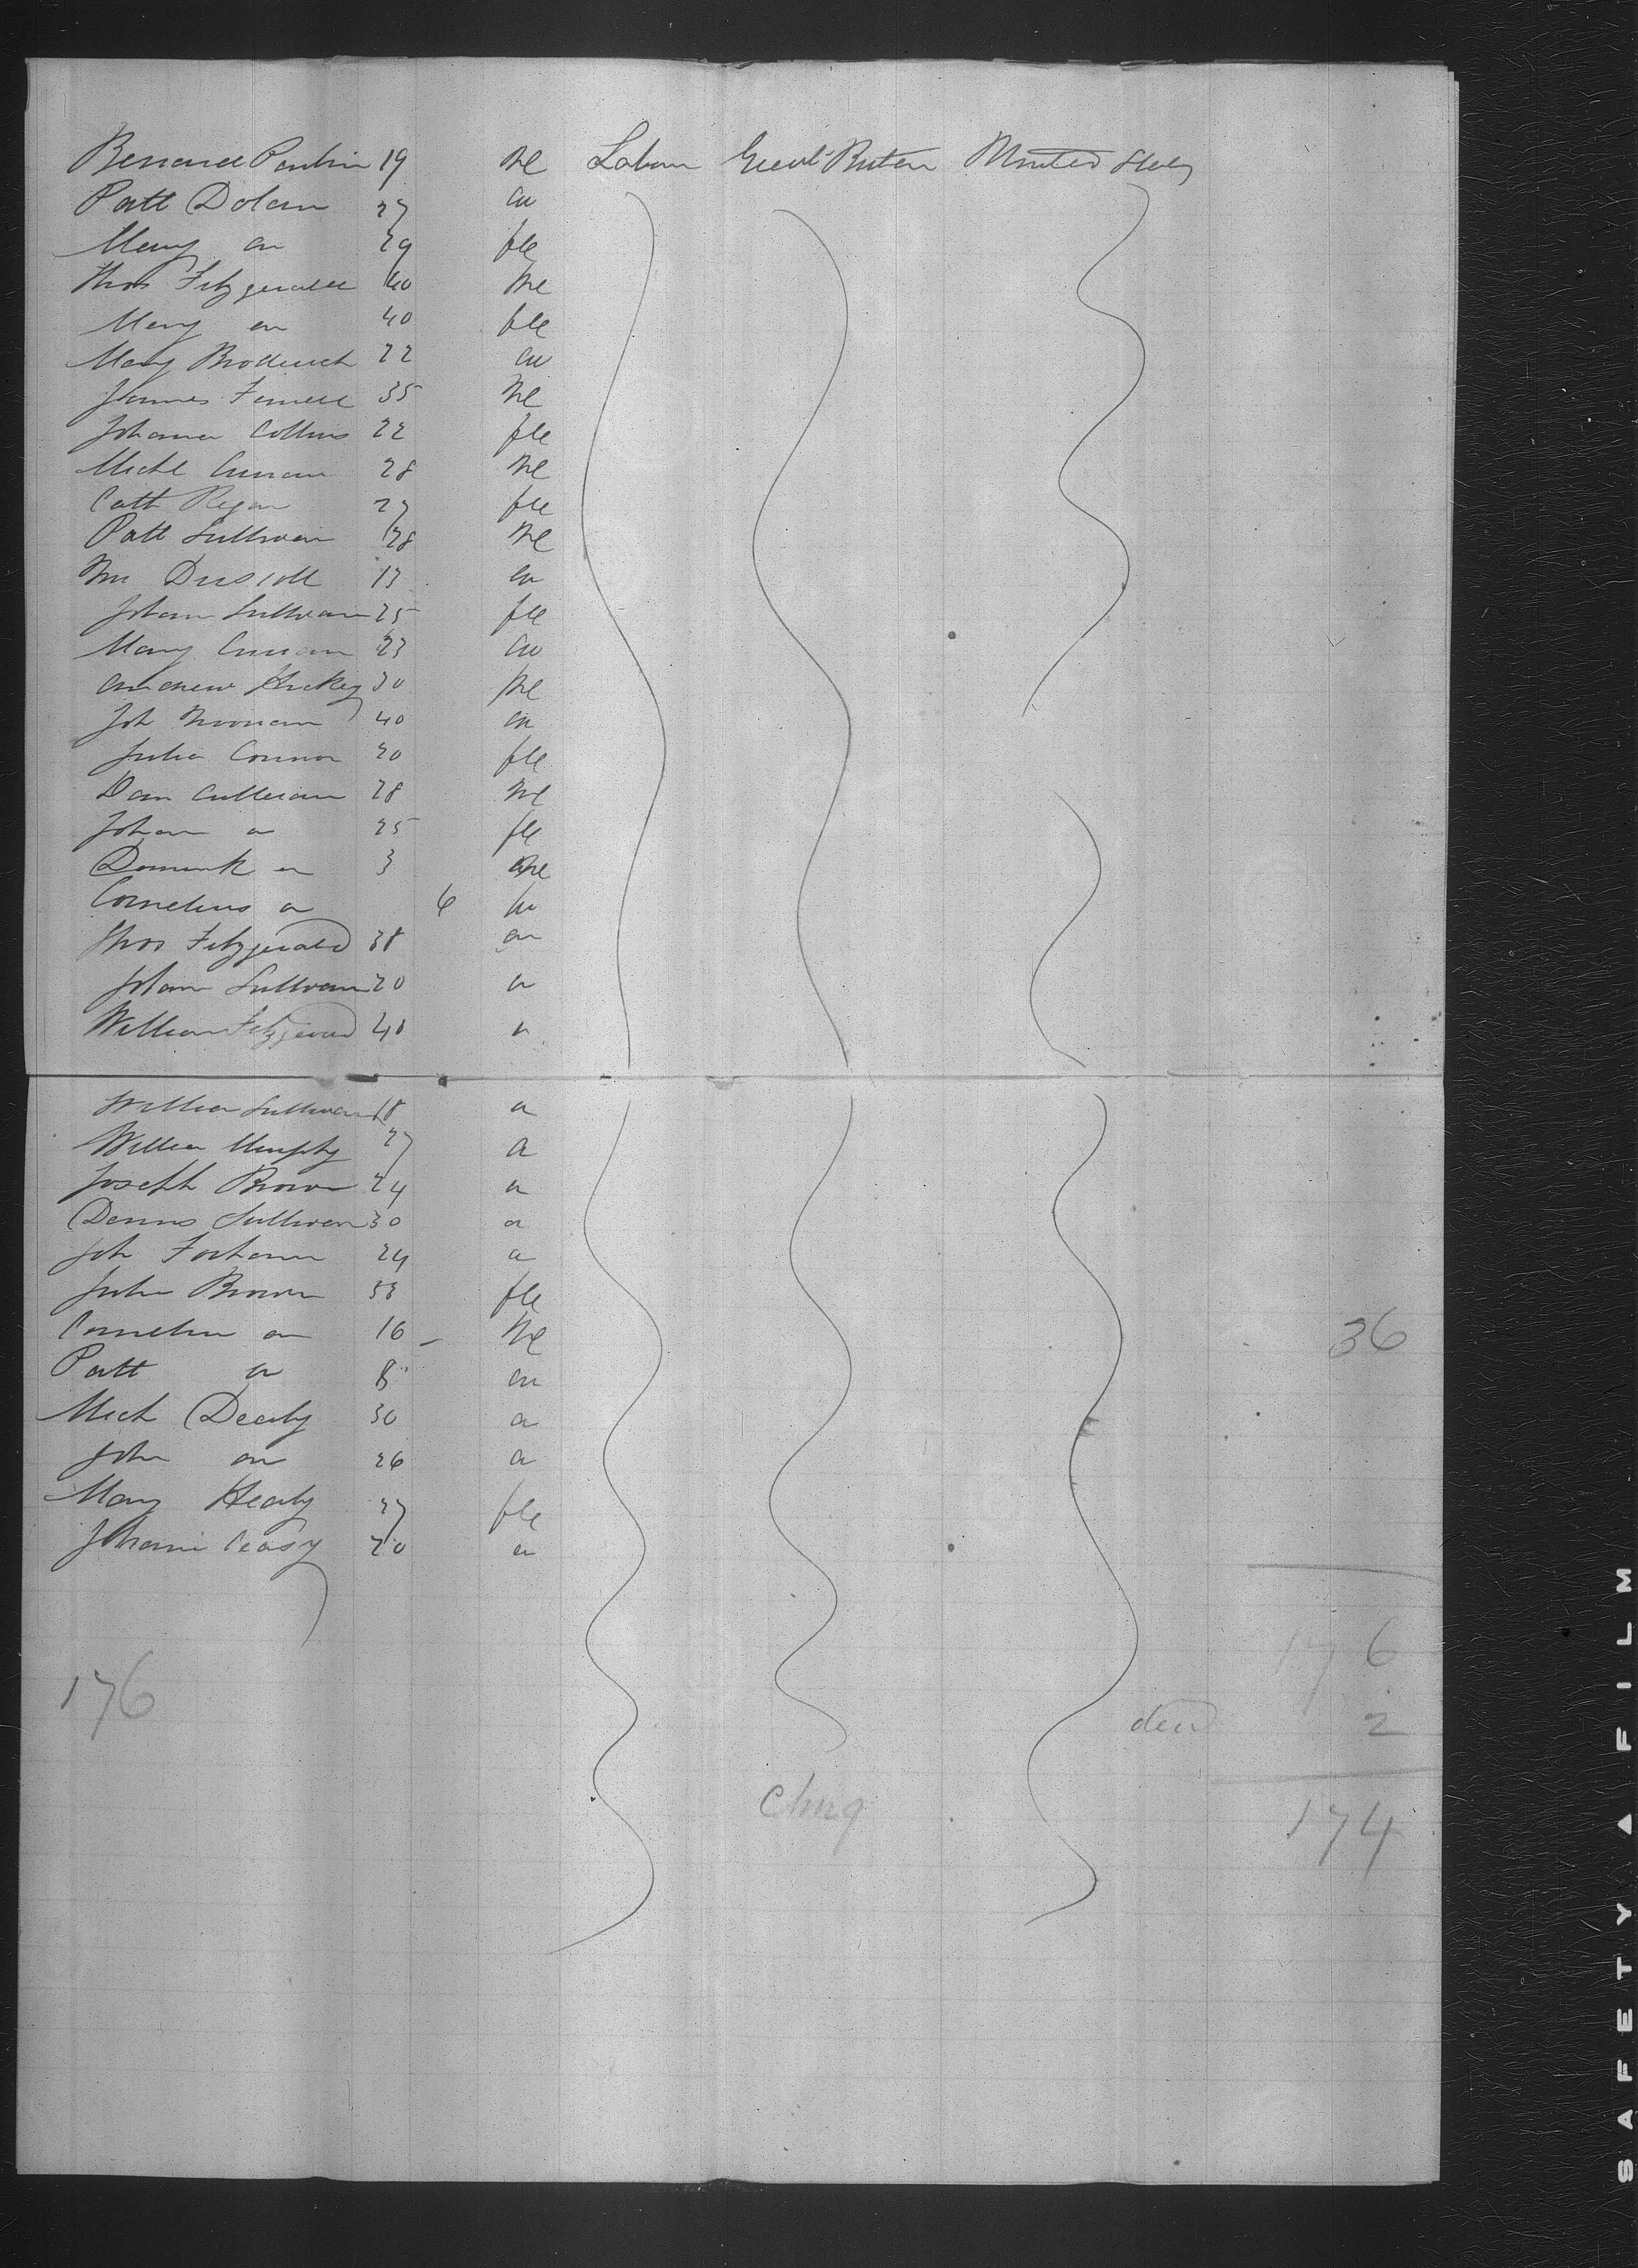 19 Me Labour Great Britain United States
Patt Dolan 27 do
Mary do 29 fle
Thos Fitzgerald 40 Me
Mary do 40 fle
Mary Broderick 22 do
James Ferrell 35 Me
Johana Collins 22 fle
Michl Curran 28 Me
Cath Regan 27 fle
Patt Sullivan 28 Me
Wm Driscoll 13 do
Johan Sullivan 25 fle
Mary Curran 23 do
Andrew Hickey 30 Me
Joh Noonan 40 do
Julia Connor 20 fle
Dan Culleran 28 Me
Johan do 25 fle
Dominik do 3 Me
Cornelius do 6 do
Thos Fitzgerald 38 do
Johan Sullivan 20 do
William Fitzgerald 40 do
William Sullivan 18 do
William Murphy 27 do
Joseph Brown 24 do
Dennis Sullivan 30 do
Joh 24 do
Julia Brown 33 fle
Cornelius do 16 Me
36
Patt do 8 do
Mich Dealy 30 do
John do 26 do
Mary Healy 27 fle
Johana Casey 20 do
176
176
dead 2
174